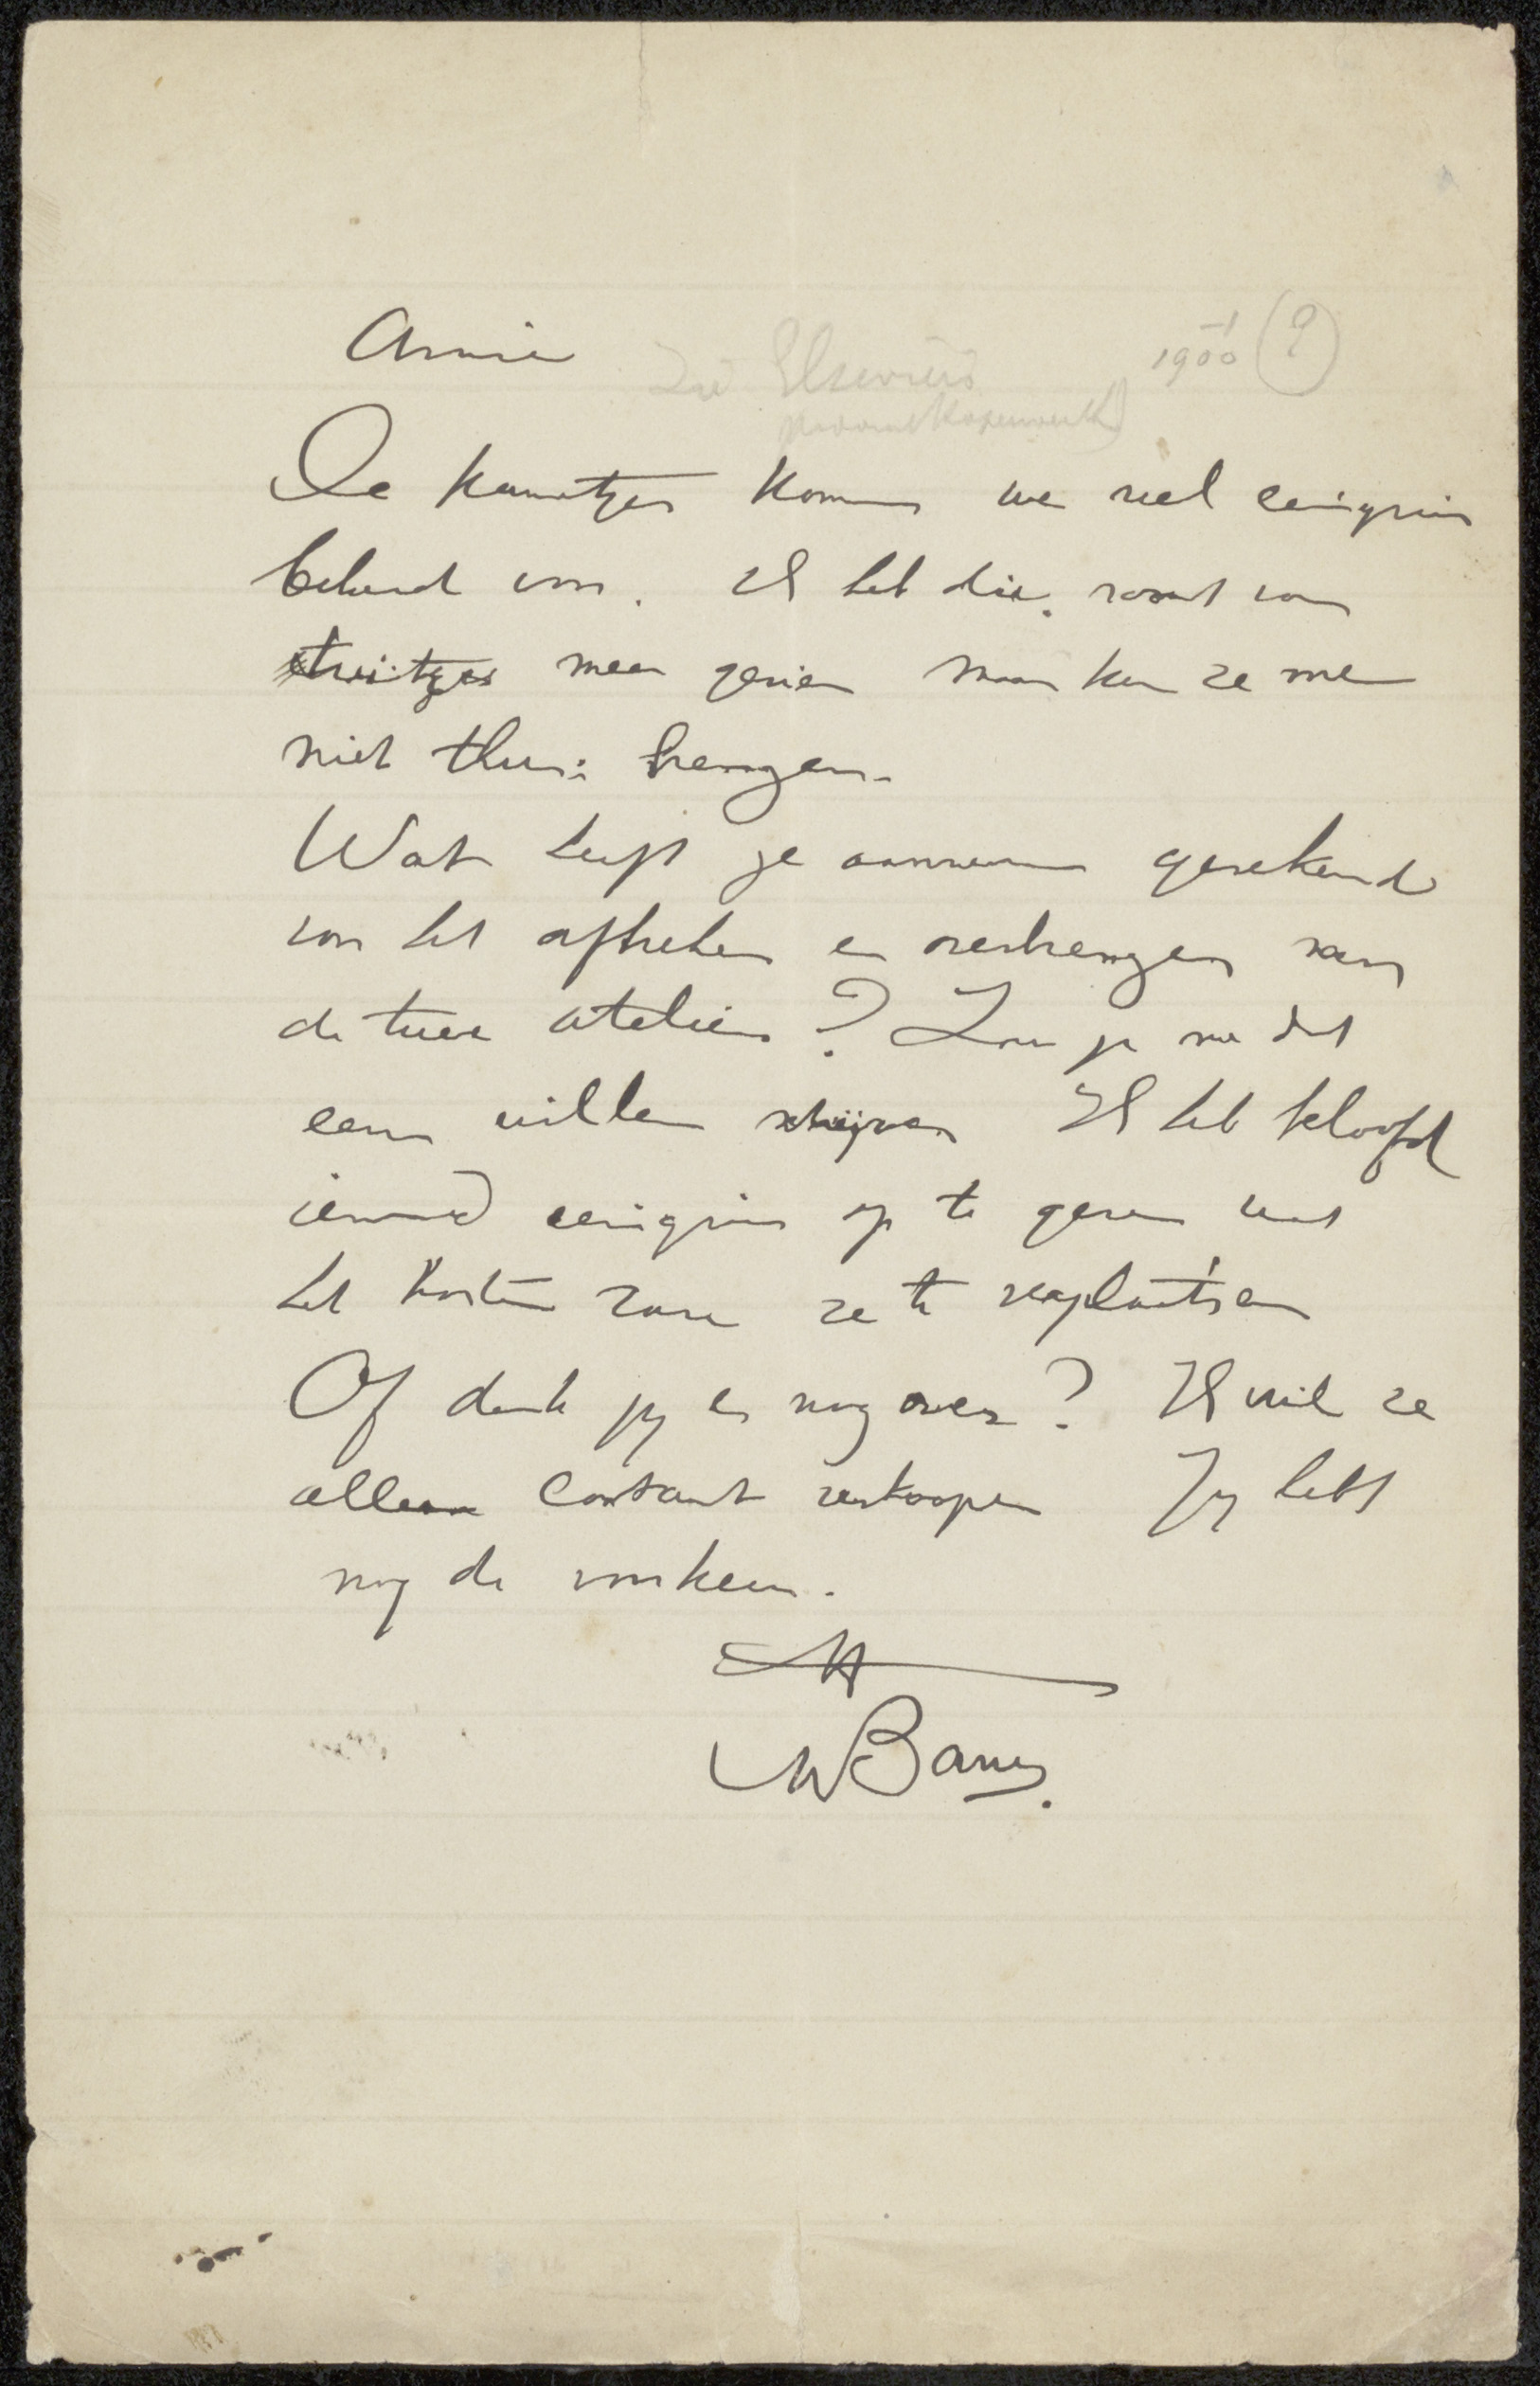 Annie
Zie Elsevier's
1900 (?)
De kunstjes komen me wel eenigzins
bekend voor. Ik heb die soort van
meer gezien maar kan ze me
niet thuis brengen.
Wat heeft je aannemer gerekend
voor het afbreken en overbrengen van
de twee ateliers? Zou je me dat
eens willen schrijven Ik heb beloofd
iemand eenigzins op te geven wat
het kosten zou ze te verplaatsen
Of denk jy er nog over? Ik wil ze
alleen contant verkoopen Jy hebt
nog de voorkeur.
MBauer.